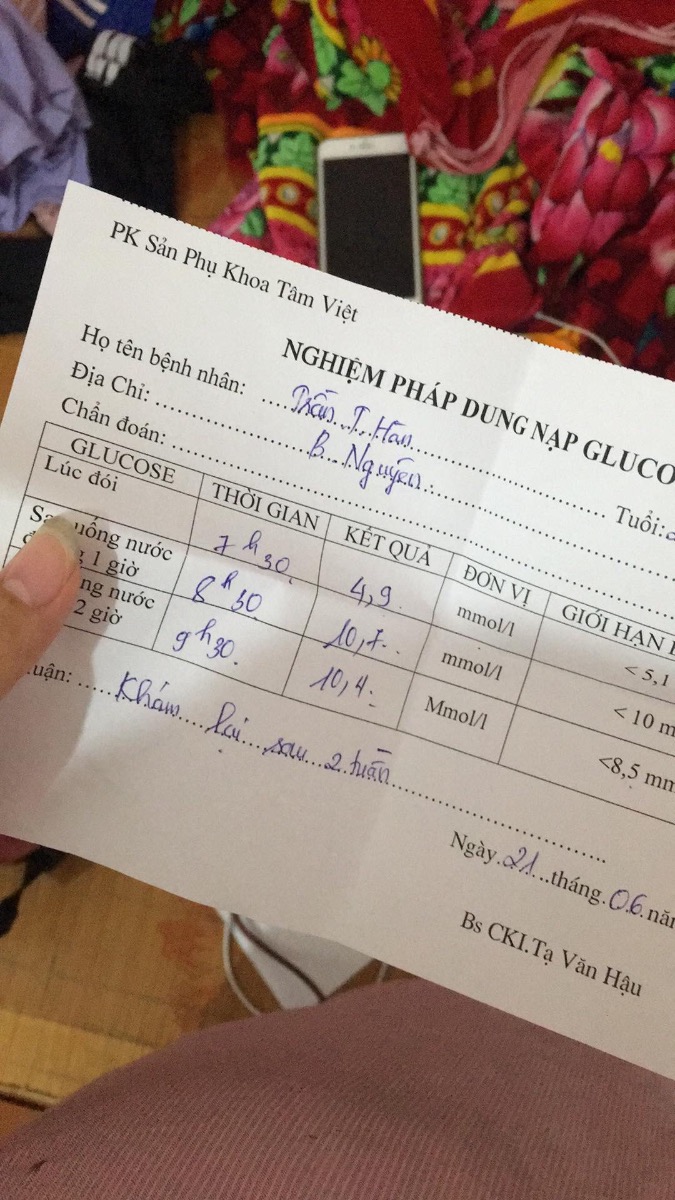 PK Sản Phụ Khoa Tâm Việt
NGHIỆM PHÁP DUNG NẠP GLUCO
Họ tên bệnh nhân: Trần T. Hậu Tuổi:
Địa Chỉ: B. Nguyên
Chẩn đoán:
GLUCOSE THỜI GIAN KẾT QUẢ ĐƠN VỊ GIỚI HẠN
Lúc đói 7h30 4,9 mmol/l <5,1
uống nước 1 giờ 8h30 10,7 mmol/l <10 m
nước 2 giờ 9h30 10,4 Mmol/l <8,5 mm
uận: Khám lại sau 2 tuần
Ngày 21 tháng 06 nă
Bs CKI.Tạ Văn Hậu